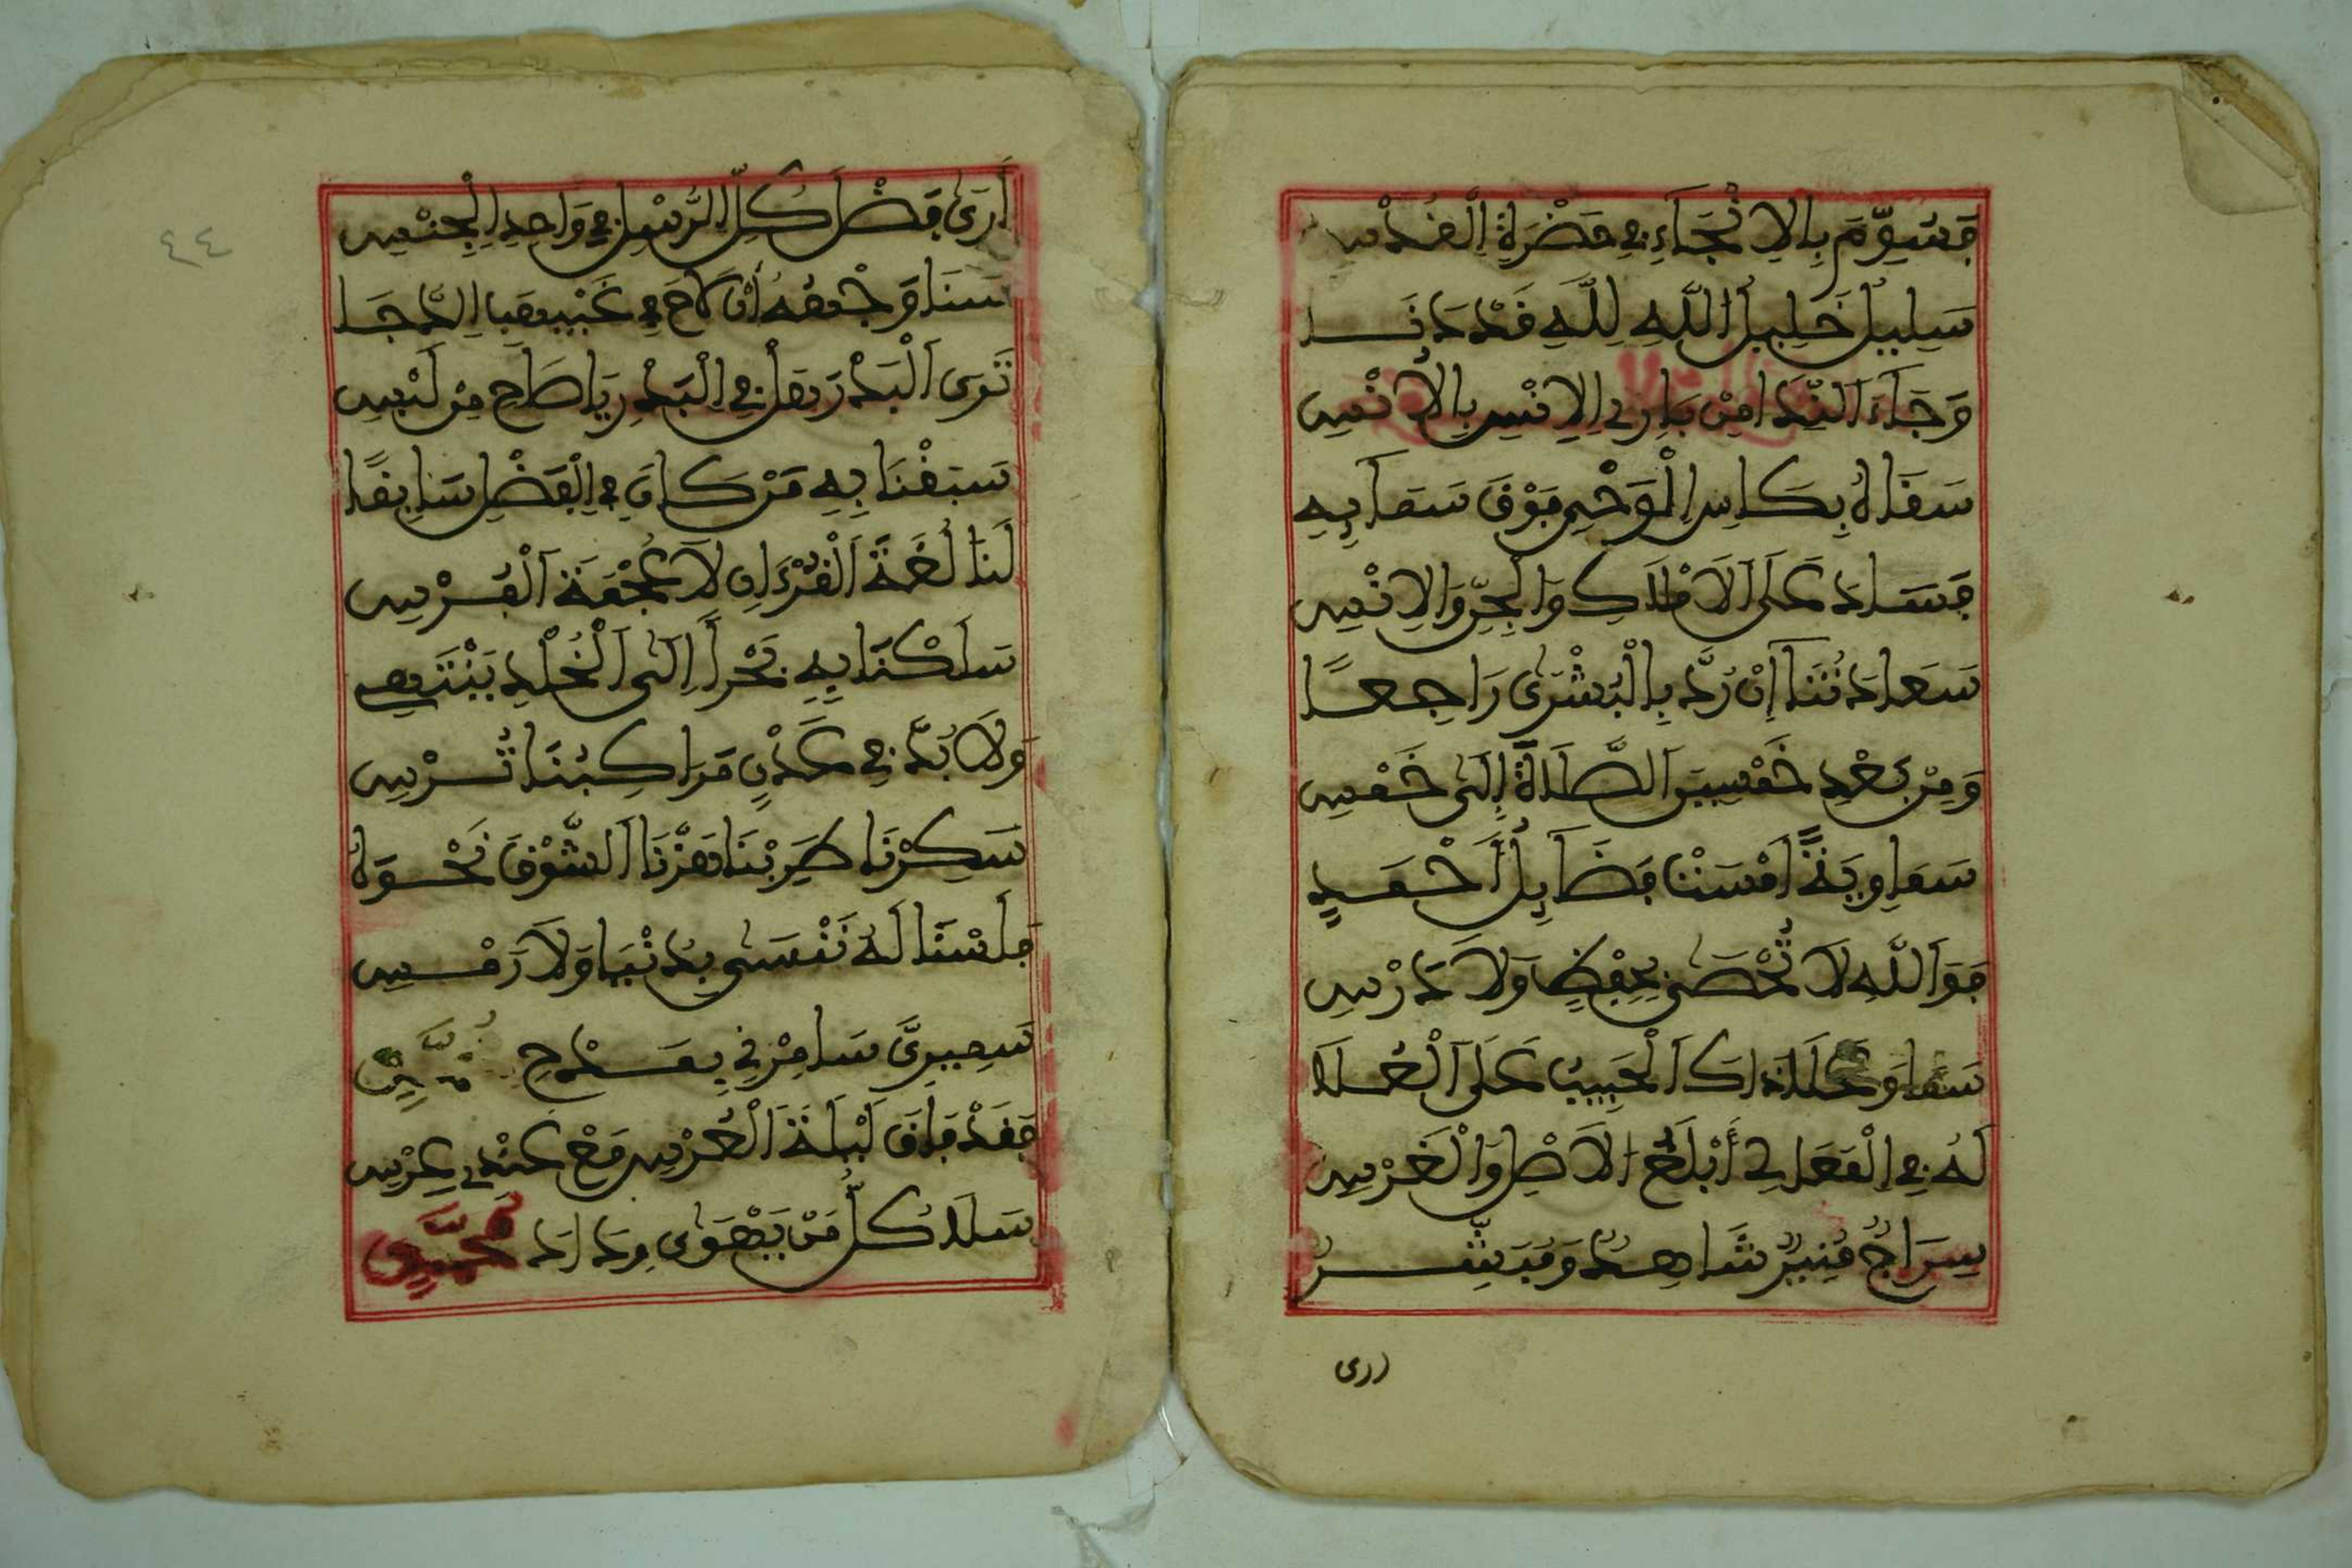 فَسُوِّمَ بِالِانْجَاءِ فِي حَضْرَةِ الْقُدْسِ
سَلِيلُ خَلِيلِ اللَّهِ لِلَّهِ قَدْ دَنَا
وَجَاءَ النِّدَا مِن بَارِئِ الِانْسِ بِالُانْسِ
سَقَاهُ بِكَاسِ الْوَحْيِ فَوْقَ سَمَائِهِ
فَسَادَ عَلَى الَامْلَاكِ وَالْجِنِّ وَالِانْسِ
سَعَادَتُنَا إِنْ رُدَّ بِالْبُشْرَى رَاجِعًا
وَمِنْ بَعْدِ خَمْسِينَ الصَّلَاةُ إِلَى خَمْسِ
سَمَاوِيَّةً امْسَتْ فَضَائِلُ أَحْمَدٍ
فَوَاللَّهِ لَا تُحْصَى بِحِفْظٍ وَلَا دَرْسِ
سَمَا وَعَلَا ذَاكَ الْحَبِيبُ عَلَى الْعُلَا
لَهُ فِي الْمَعَالِي أَبْلَغُ الَاصْلِ وَالْغَرْسِ
سِرَاجٌ مُنِيرٌ شَاهِدٌ وَمُبَشِّرٌ
ارى
٤٤
أَرَى فَضْلَ كُلِّ الرُّسْلِ فِي وَاحِدِ الْجِنْسِ
سَنَا وَجْهِهِ أَنْ لَاحَ فِي غَيْهَبِ الدُّجَا
تَرَى الْبَدْرَ بَلْ فِي الْبَدْرِ يَا صَاحِ مِن لَبْسِ
سَبَقْنَا بِهِ مَنْ كَانَ فِي الْفَضْلِ سَابِقًا
لَنَا لُغَةُ الْقُرْءَانِ لَا عُجْمَةُ الْفُرْسِ
سَلَكْنَا بِهِ بَحْرًا إِلَى الْخُلْدِ يَنْتَهِي
وَلَا بُدَّ فِي عَدْنٍ مَرَاكِبُنَا تُرْسِ
سَكِرْنَا طَرِبْنَا هَزَّنَا الشَّوْقُ نَحْوَهُ
فَلَسْنَا لَهُ نَنْسَى بِدُنْيَا وَلَا رَمْسِ
سَمِيرِيَّ سَامِرْنِي بِمَدْحِ
فَقَدْ فَاقَ لَيْلَةَ الْعُرْسِ مَعْ عِنْدِي عِرْسِ
سَلَا كُلُّ مَنْ يَهْوَى وِدَادَ مُحَمَّدٍ